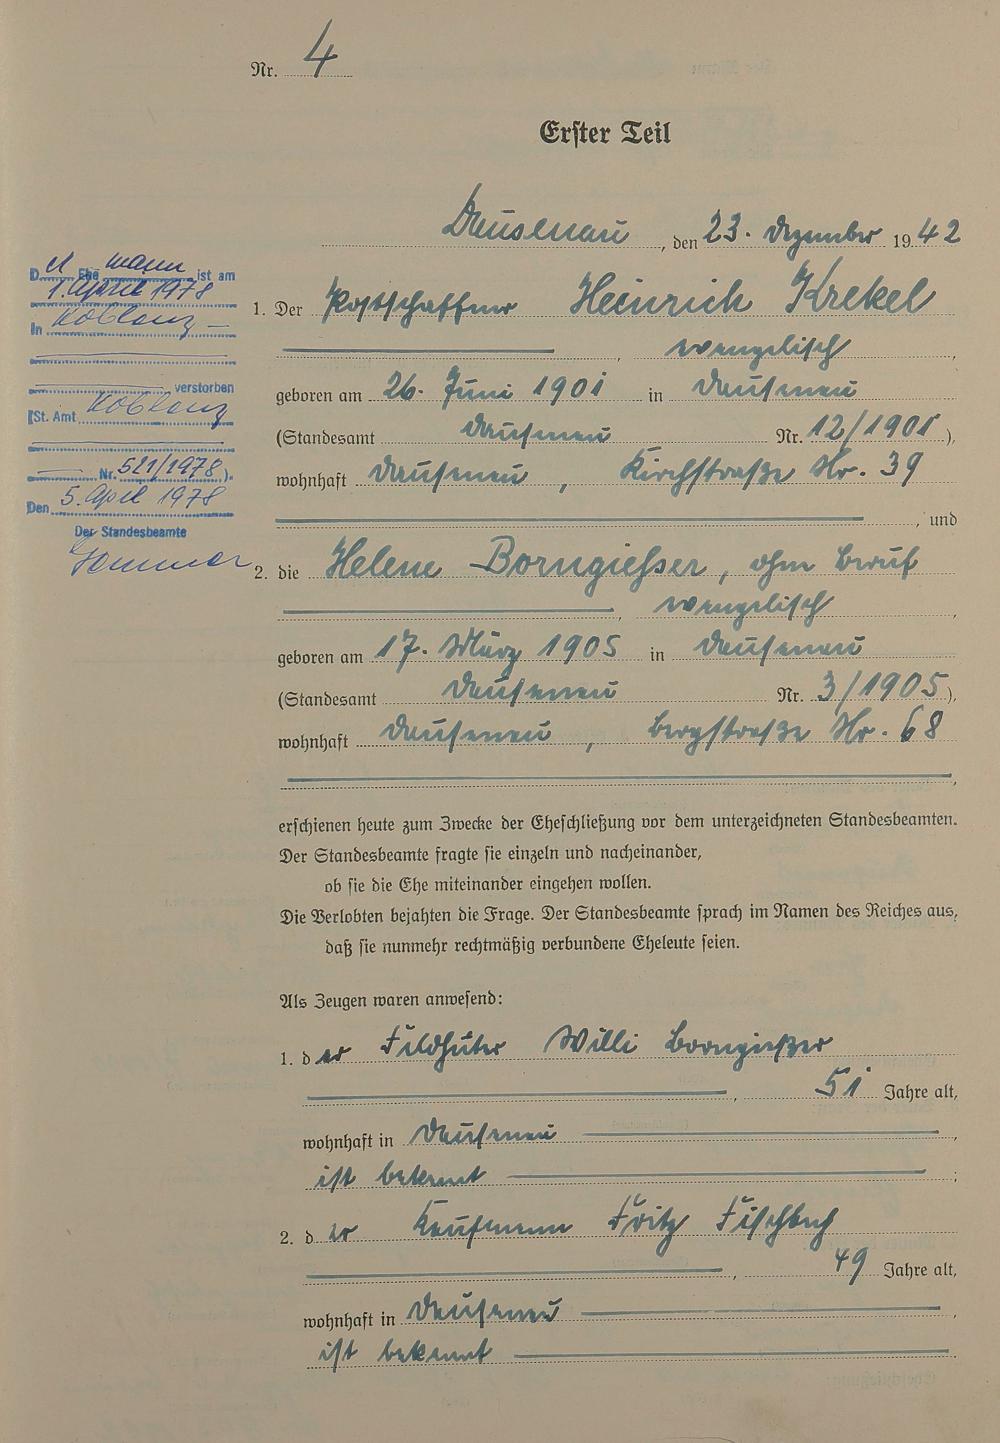 Nr. 4
Erster Teil
Dausenau, den 23. Dezember 1942
1. Der Postschaffner Heinrich Krekel
, evangelisch,
geboren am 26. Juni 1901 in Dausenau
(Standesamt Dausenau Nr. 12/1901),
wohnhaft Dausenau, Kirchstraße Nr. 39
, und
2. die Helene Borngießer, ohne Beruf
, evangelisch,
geboren am 17. März 1905 in Dausenau
(Standesamt Dausenau Nr. 3/1905),
wohnhaft Dausenau, Bergstraße Nr. 68
,
erschienen heute zum Zwecke der Eheschließung vor dem unterzeichneten Standesbeamten.
Der Standesbeamte fragte sie einzeln und nacheinander,
ob sie die Ehe miteinander eingehen wollen.
Die Verlobten bejahten die Frage. Der Standesbeamte sprach im Namen des Reiches aus,
daß sie nunmehr rechtmäßig verbundene Eheleute seien.
Als Zeugen waren anwesend:
1. der Feldhüter Willi Borngießer
, 51 Jahre alt,
wohnhaft in Dausenau,
ist bekannt;
2. der Kaufmann Fritz Fischbach
, 49 Jahre alt,
wohnhaft in Dausenau,
ist bekannt
D er Ehe mann ist am
1. April 1978
in Koblenz –
verstorben
(St. Amt Koblenz
Nr. 521/1978).
Den 5. April 1978
Der Standesbeamte